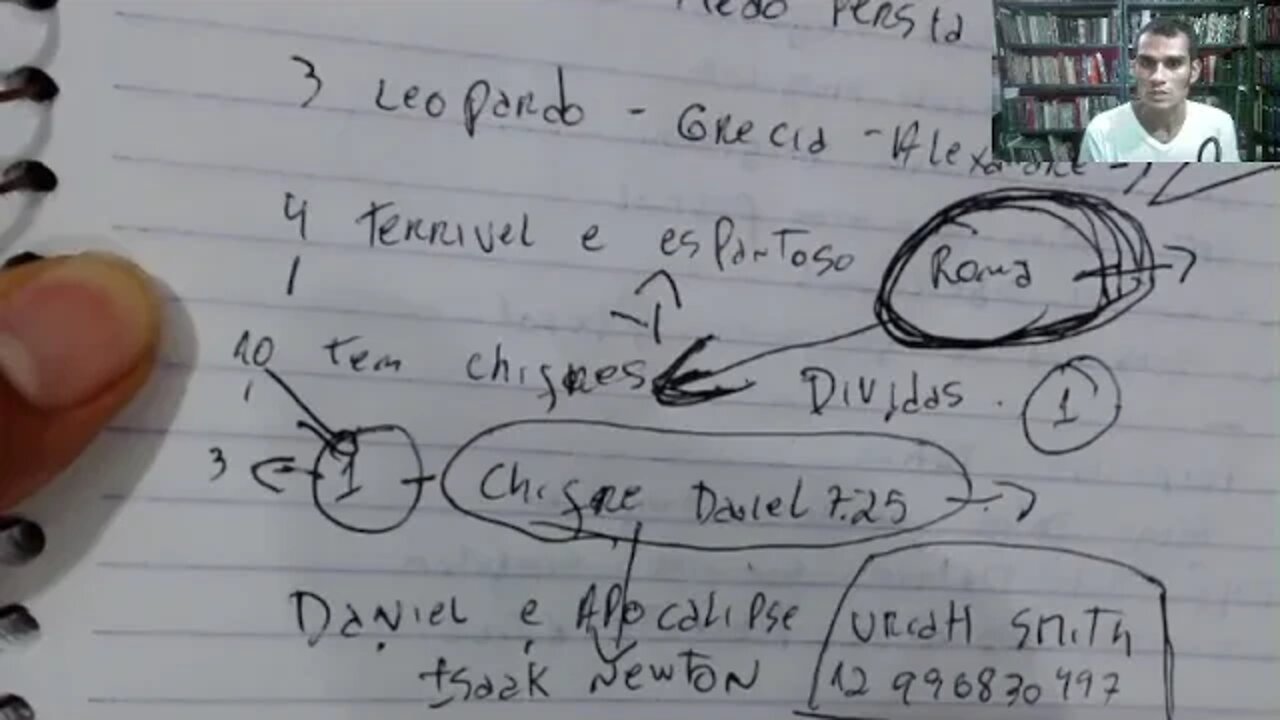 Medo Persia
3 Leopardo - Grecia - Alexandre
4 terrivel e espantoso Roma
10 tem chifres Dividas. 1
3 1 Chifre Daniel 7.25
Daniel e Apocalipse
Isaak Newton
Uriah Smith
12 996830497